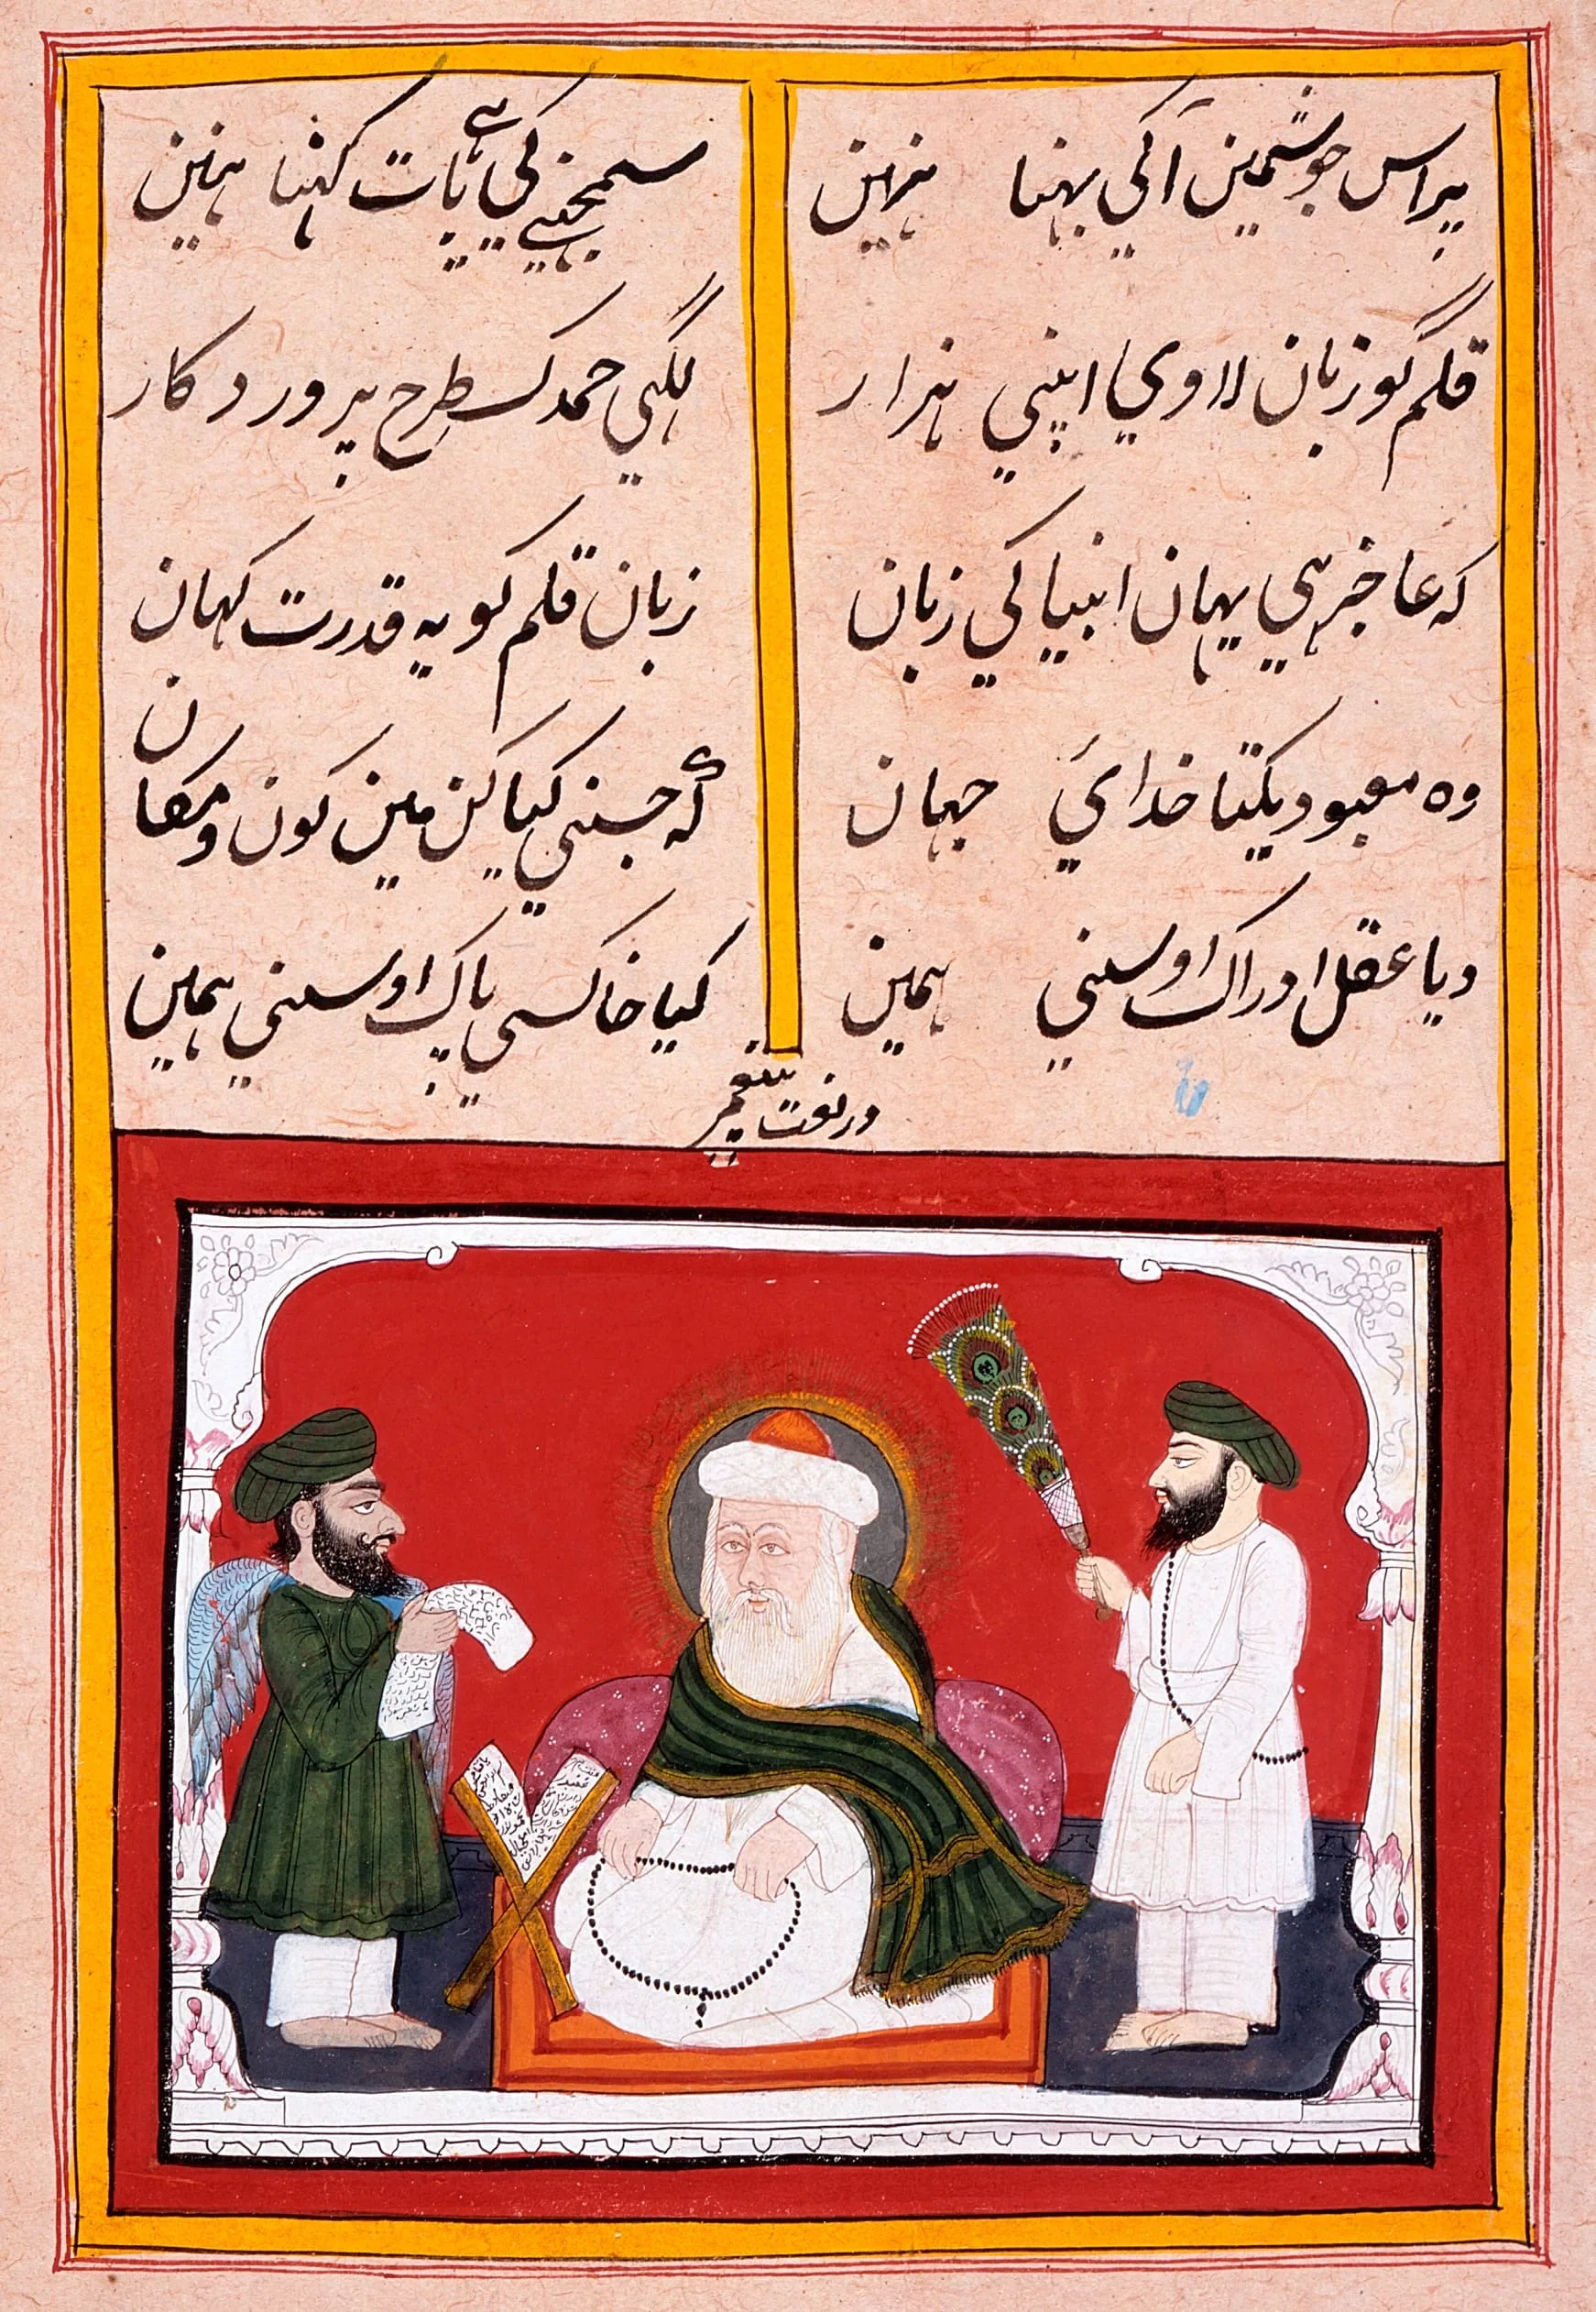 پر اس جوشمین آکی بہنا نہین
سمجنیکی ہی بات کہنا نہین
قلم گو زبان لاوی اپنی ہزار
لکہی حمد کسطرح پروردکار
کہ عاجز ہی یہان انبیا کی زبان
زبان قلم کو یہ قدرت کہان
وہ معبود یکتا خدای جہان
کہ جسنی کیا کن مین کون و مکان
دیا عقل ادراک اوسنی ہمین
کیا خاکسی پاک اوسنی ہمین
در نعت پیغمبر